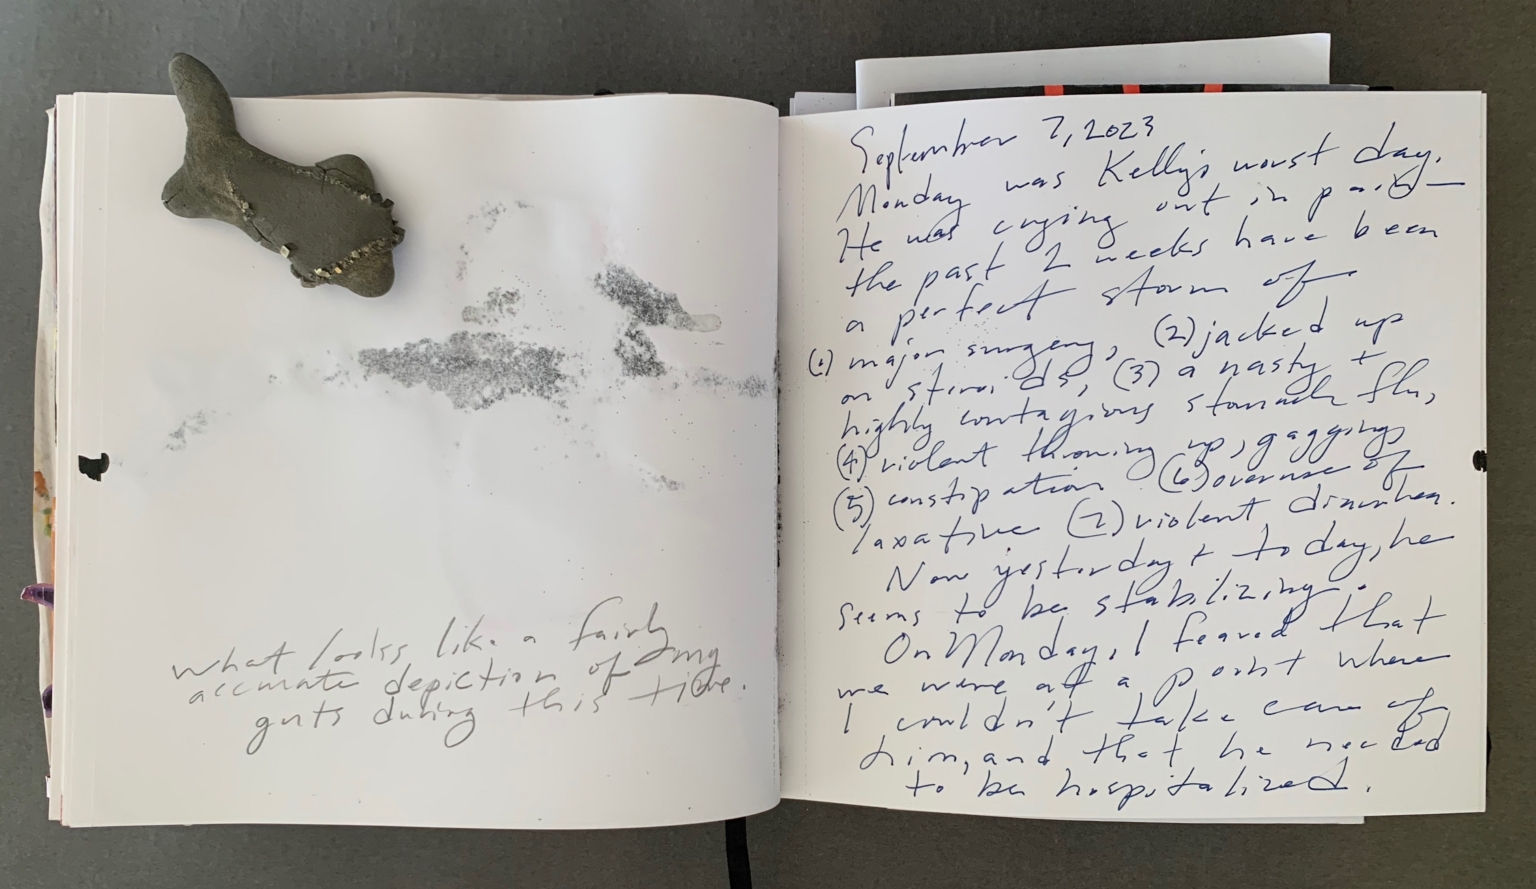 what looks like a fairly
accurate depiction of my
guts during this time.
September 7, 2023
Monday was Kelly's worst day.
He was crying out in pain—
the past 2 weeks have been
a perfect storm of
(1) major surgery, (2) jacked up
on steroids, (3) a nasty +
highly contagious stomach flu,
(4) violent throwing up, gagging,
(5) constipation (6) overuse of
laxative (7) violent diarrhea.
Now yesterday + today, he
seems to be stabilizing.
On Monday, I feared that
we were at a point where
I couldn't take care of
him, and that he needed
to be hospitalized.